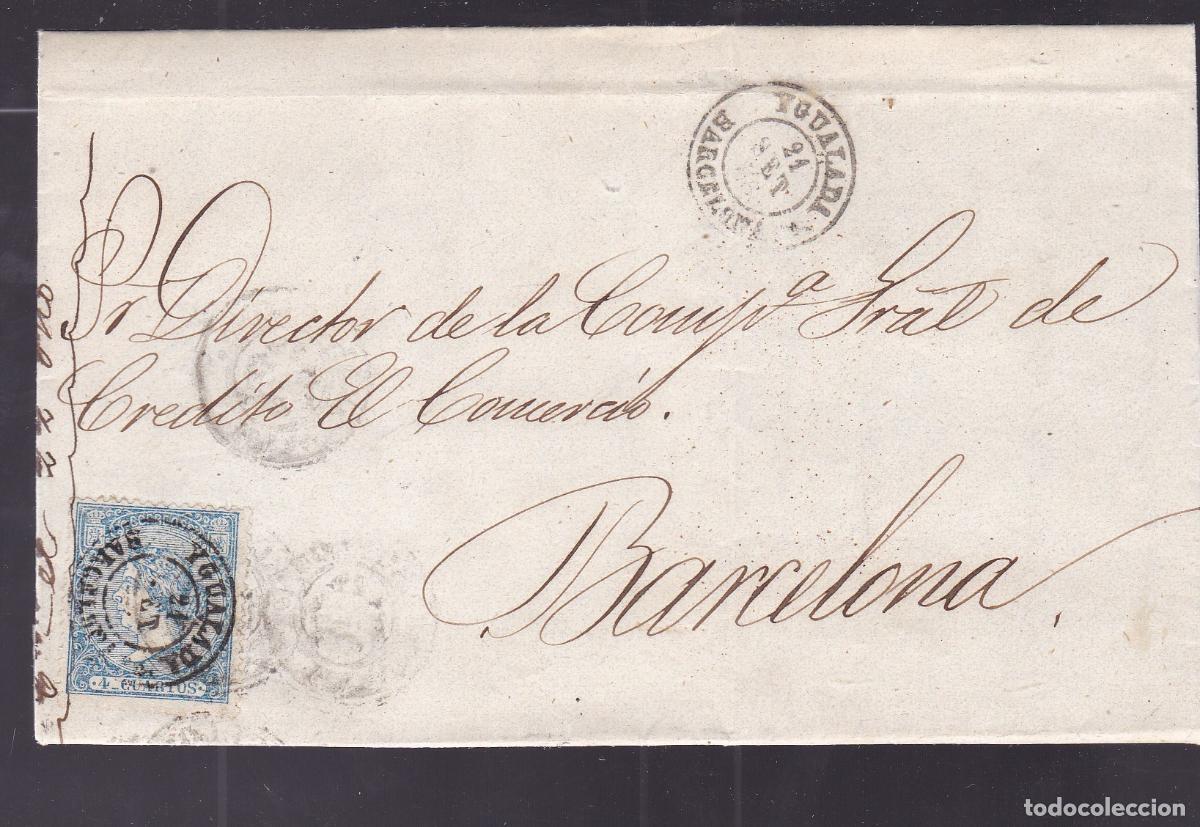 YGUALADA
BARCELONA
21
SET
Sr Director de la Compª Gral de
Credito El Comercio.
Barcelona.
YGUALADA
BARCELONA
21
SET
4 CUARTOS
todocoleccion